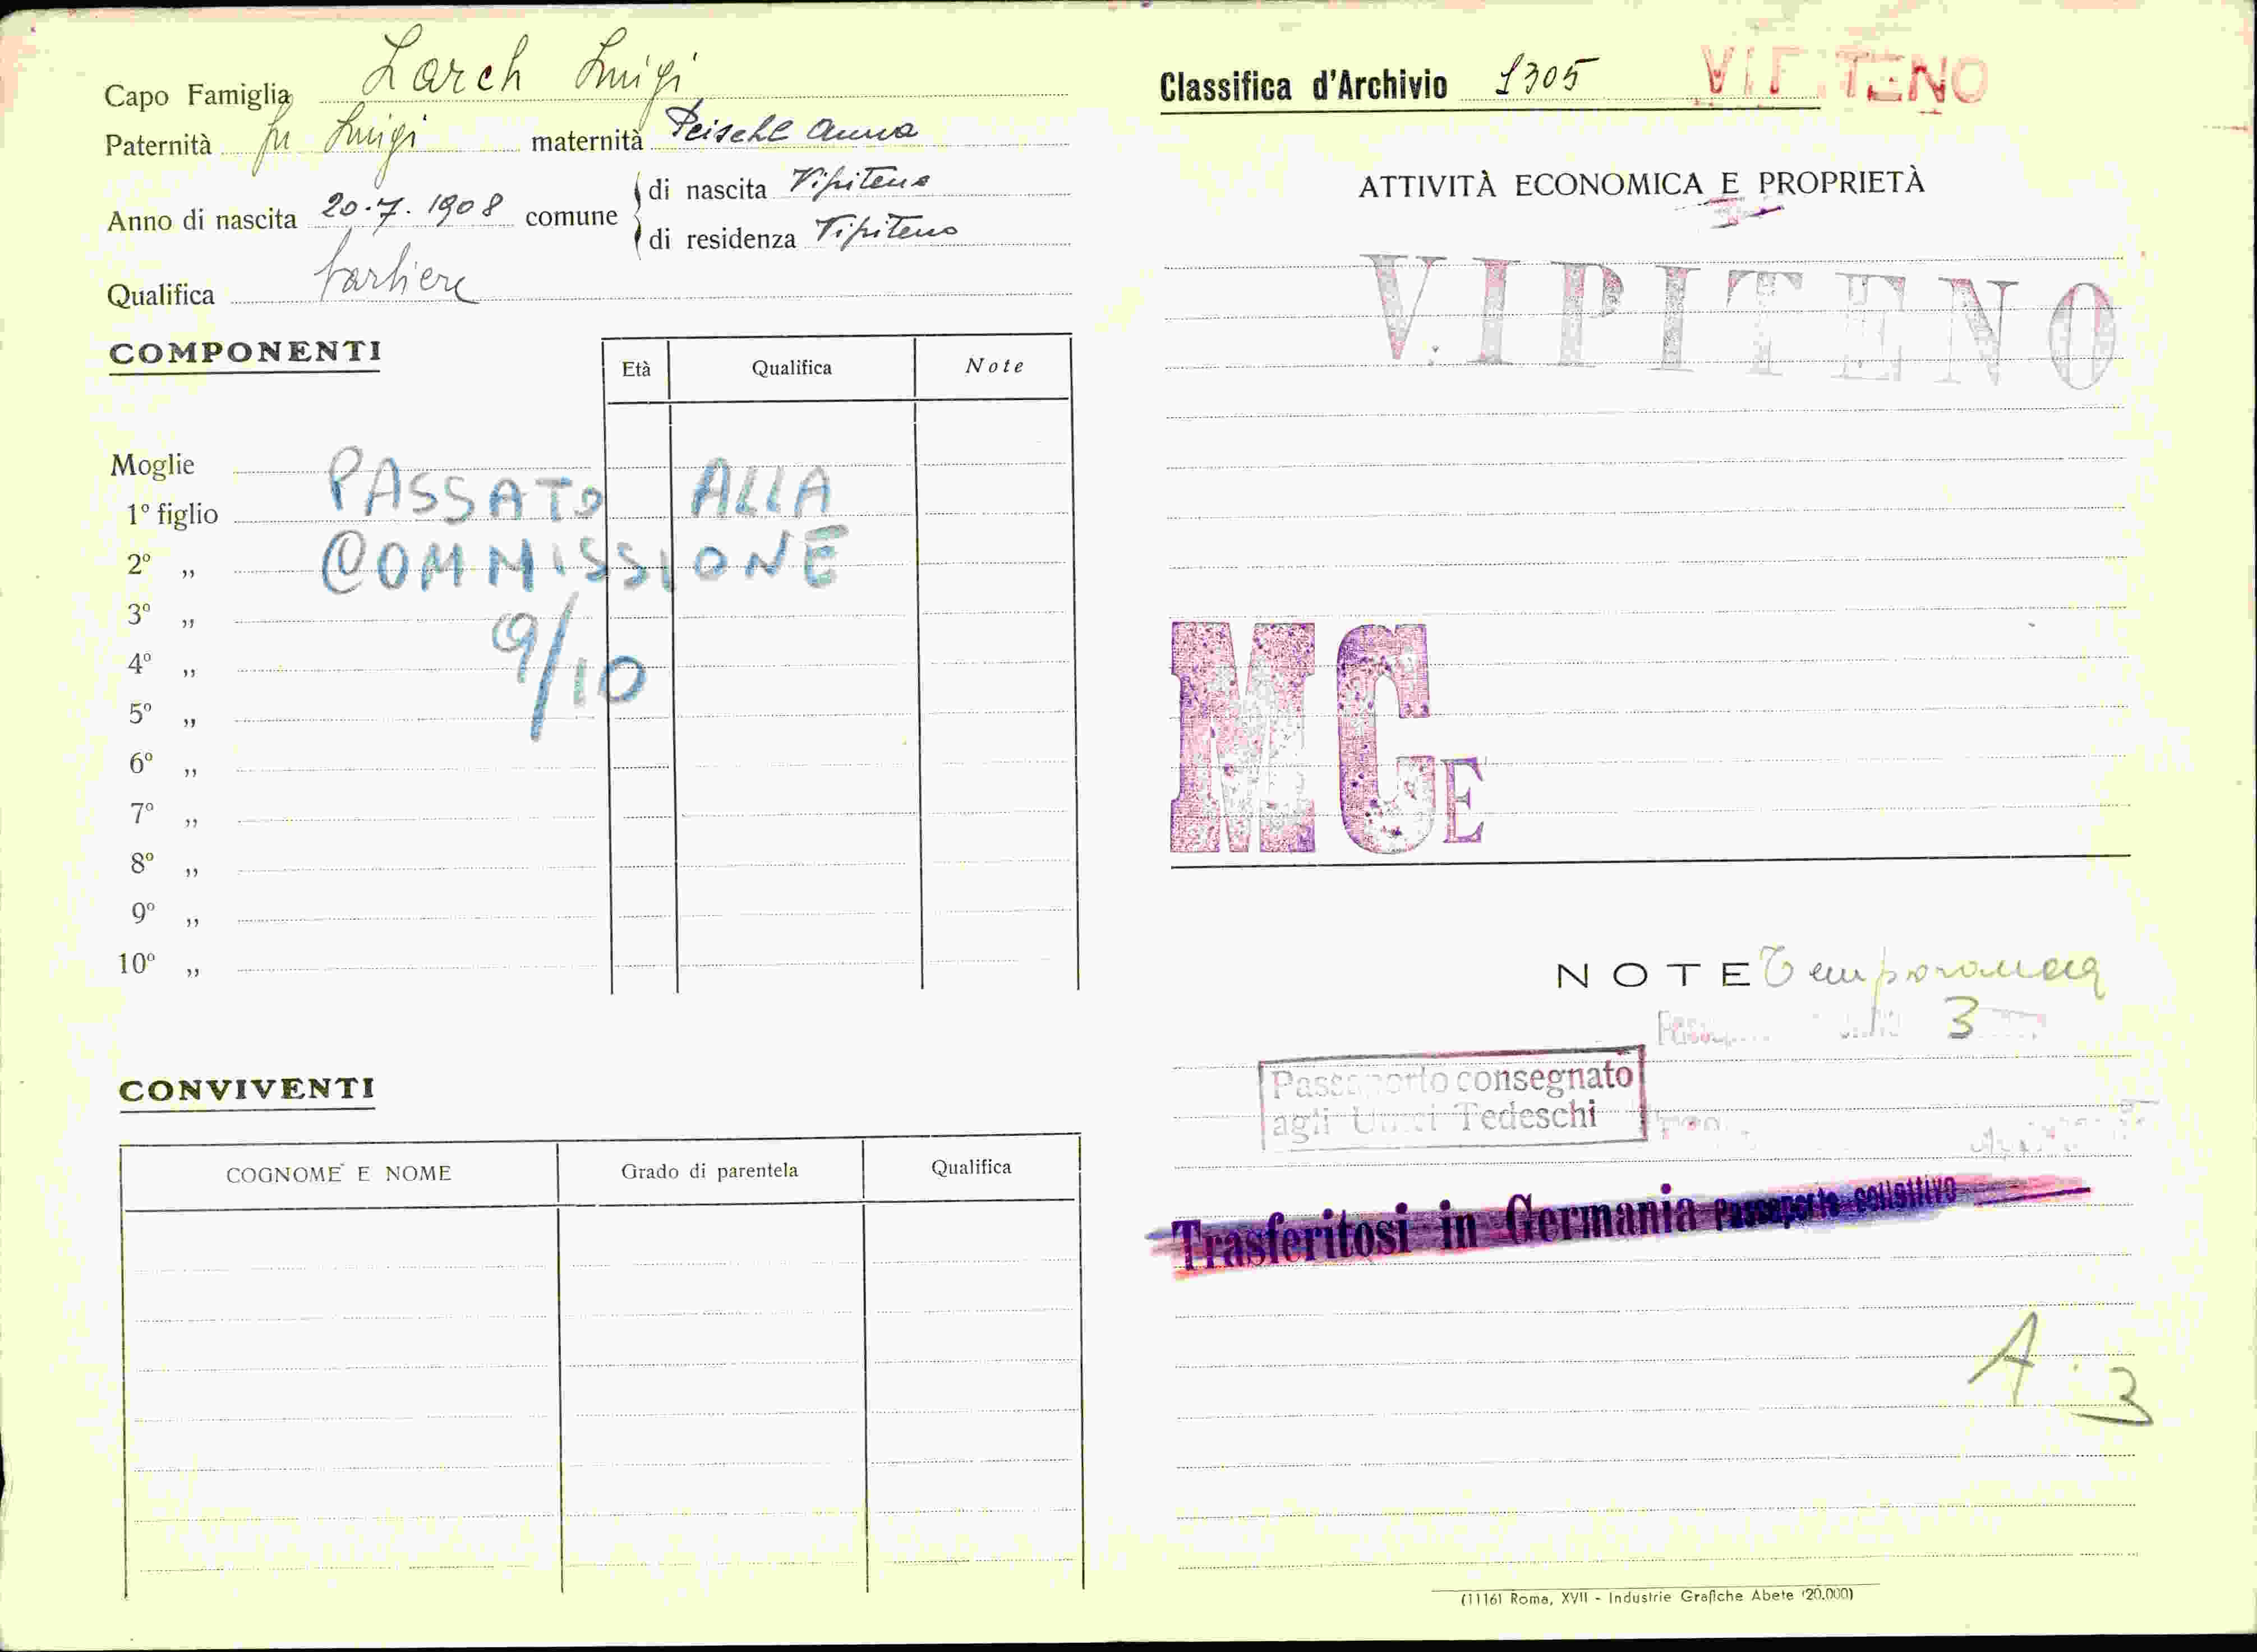 Capo Famiglia Larch Luigi
Paternità fu Luigi maternità Peischl Anna
Anno di nascita 20.7.1908 comune di nascita Vipiteno
di residenza Vipiteno
Qualifica barbiere
COMPONENTI
Età Qualifica Note
Moglie
1º figlio
2º „
3º „
4º „
5º „
6º „
7º „
8º „
9º „
10º „
PASSATO ALLA
COMMISSIONE
9/10
CONVIVENTI
COGNOME E NOME Grado di parentela Qualifica
Classifica d'Archivio 1305 VIPITENO
ATTIVITÀ ECONOMICA E PROPRIETÀ
VIPITENO
MCE
NOTE
3
Passaporto consegnato
agli Uffici Tedeschi
Trasferitosi in Germania Passaporto collettivo
A
3
(11161 Roma, XVII - Industrie Grafiche Abete (20.000)